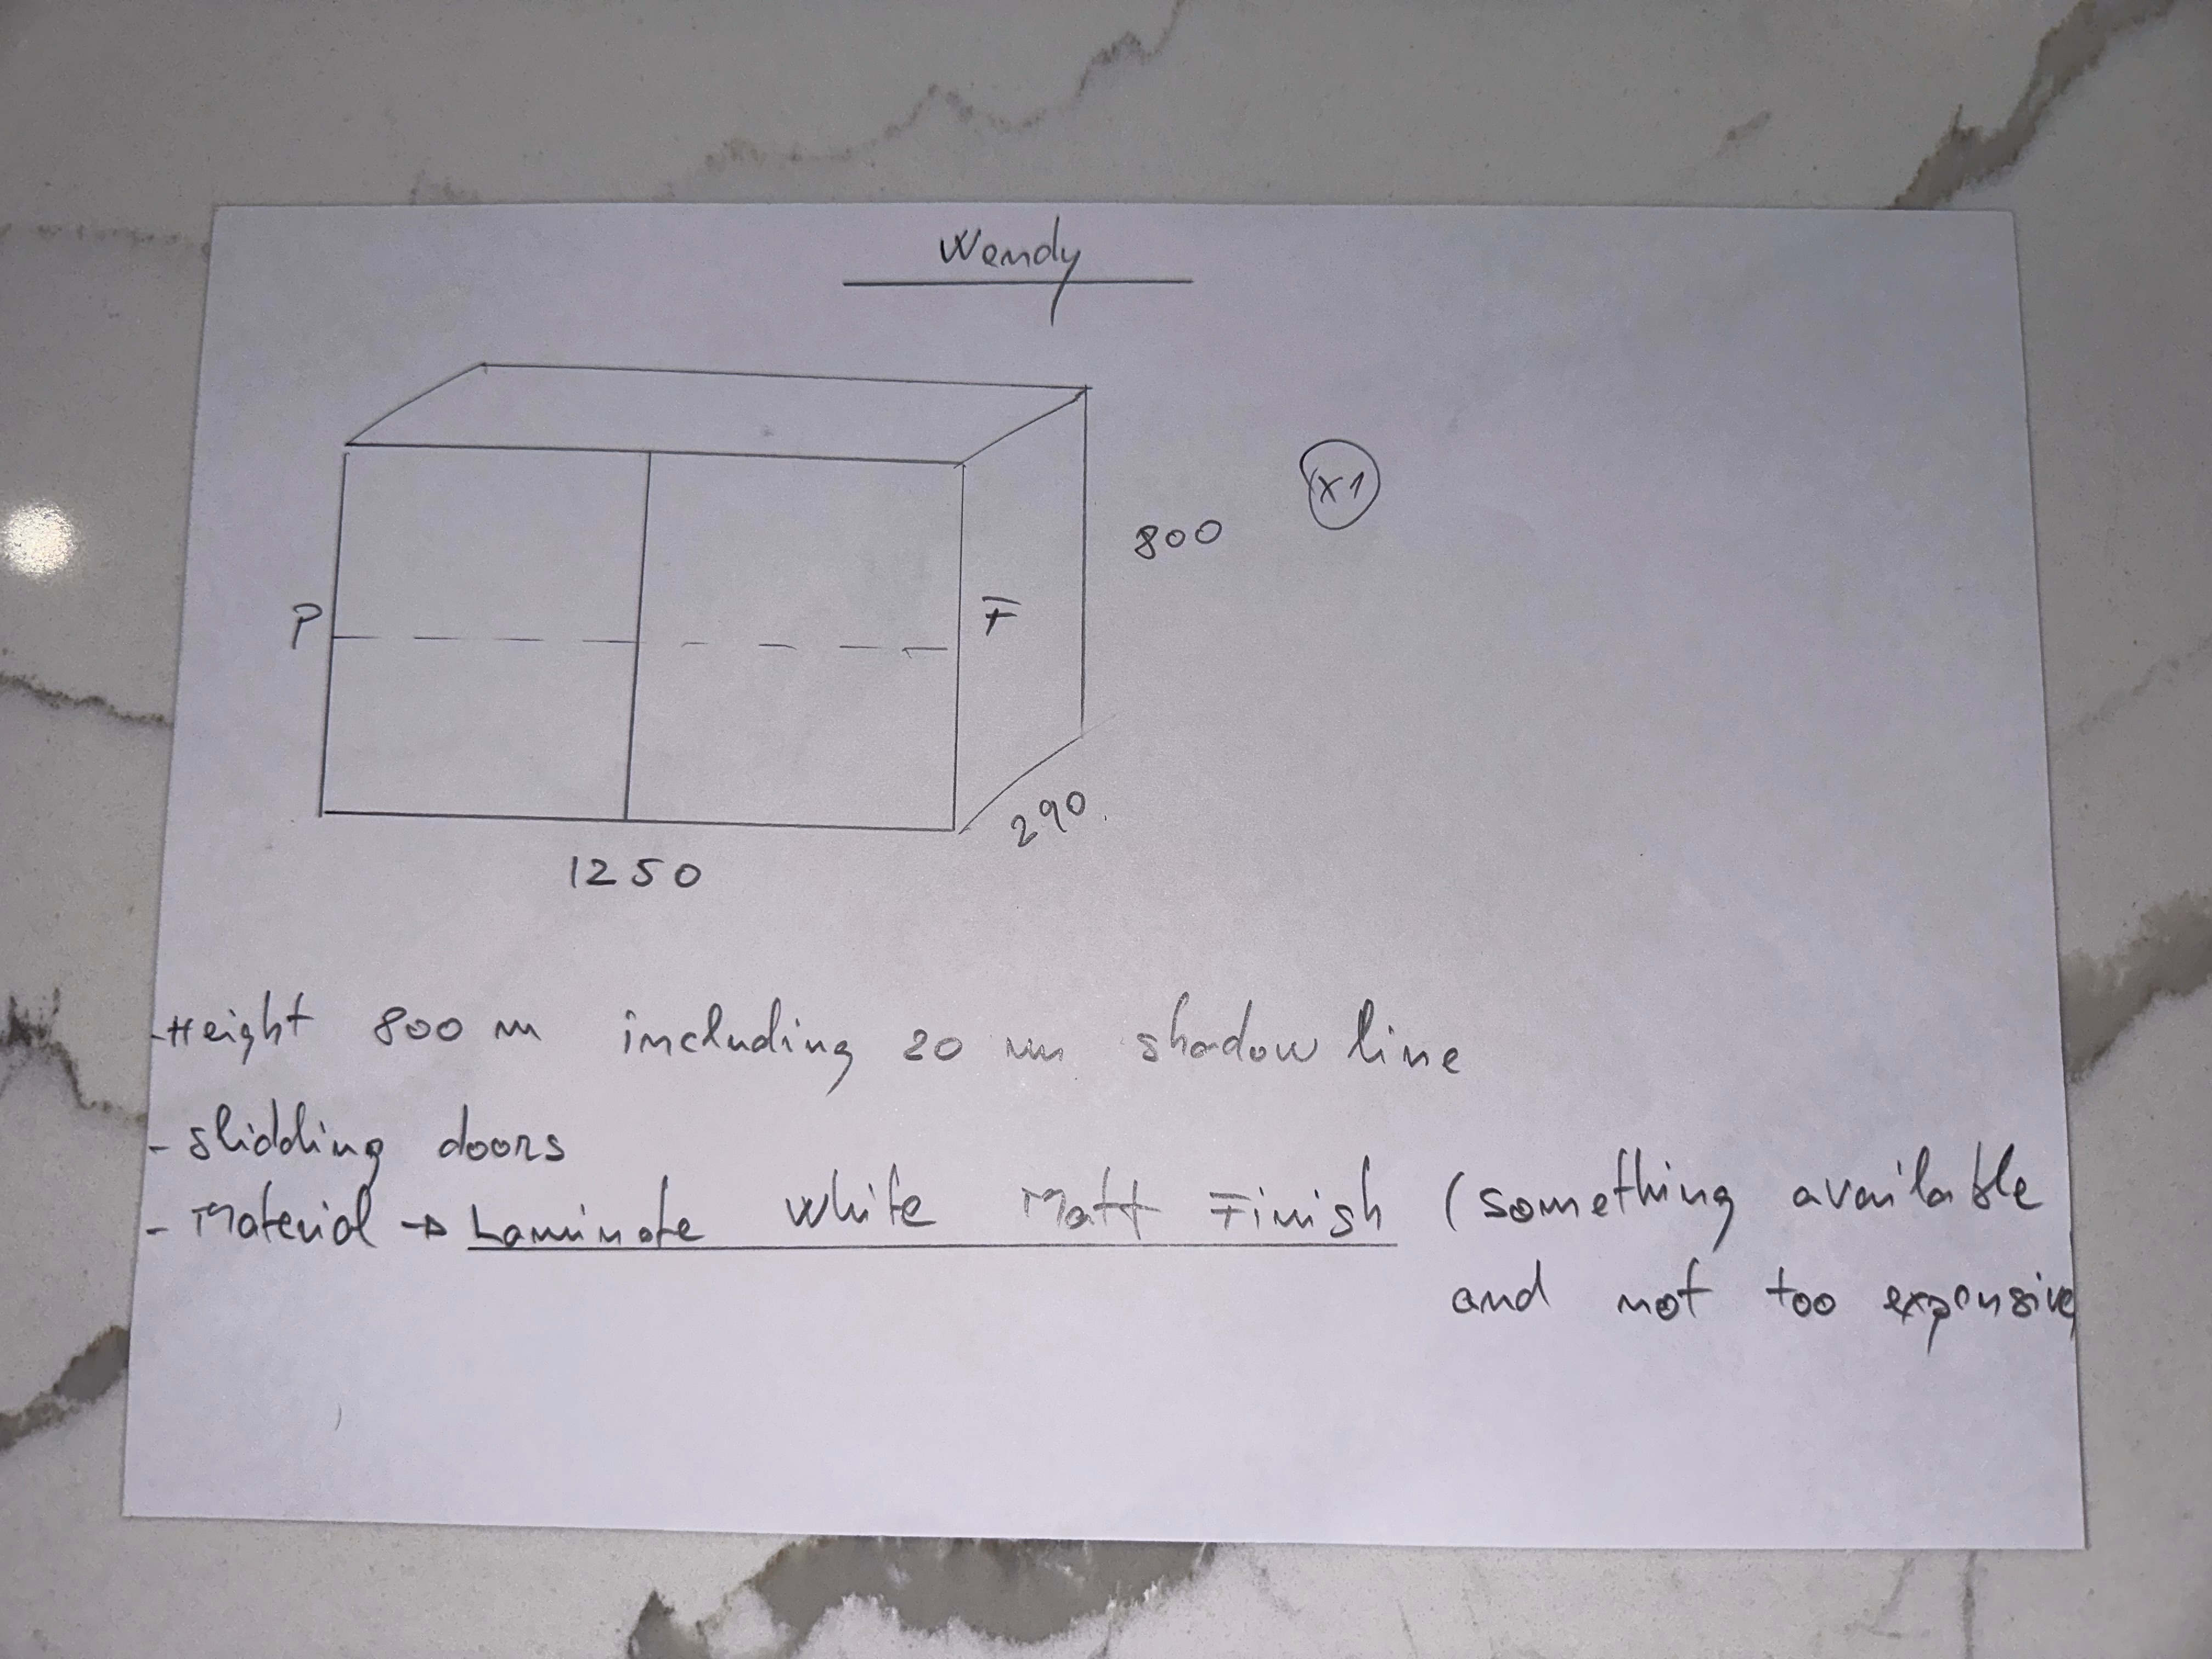 Wendy
x1
800
P
F
290.
1250
-Height 800 m including 20 mm shadow line
- slidding doors
- Material → Laminate white Matt Finish (something available
and not too expensive